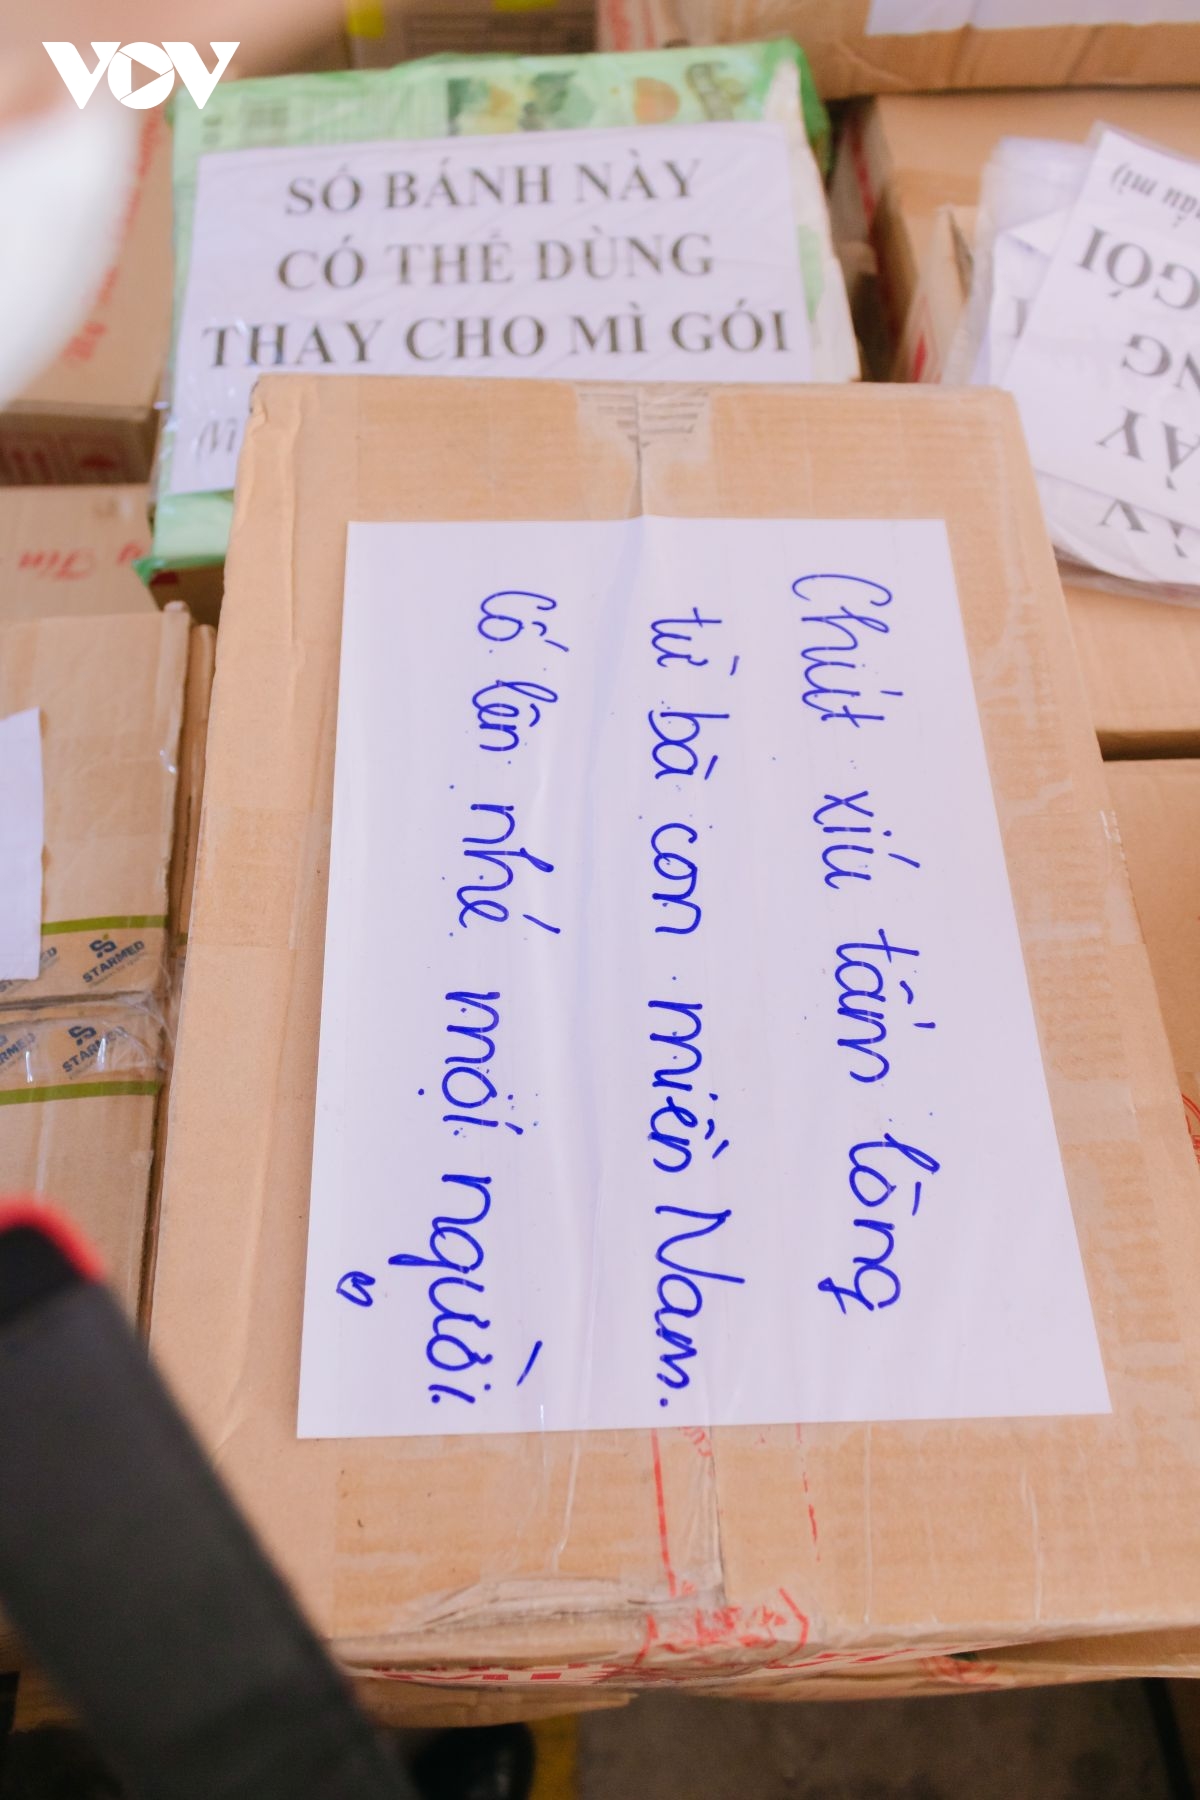 VOV
SỐ BÁNH NÀY
CÓ THỂ DÙNG
THAY CHO MÌ GÓI
Chút xíu tấm lòng
từ bà con miền Nam.
Cố lên nhé mọi người.
STARMED
STARMED
GÓI